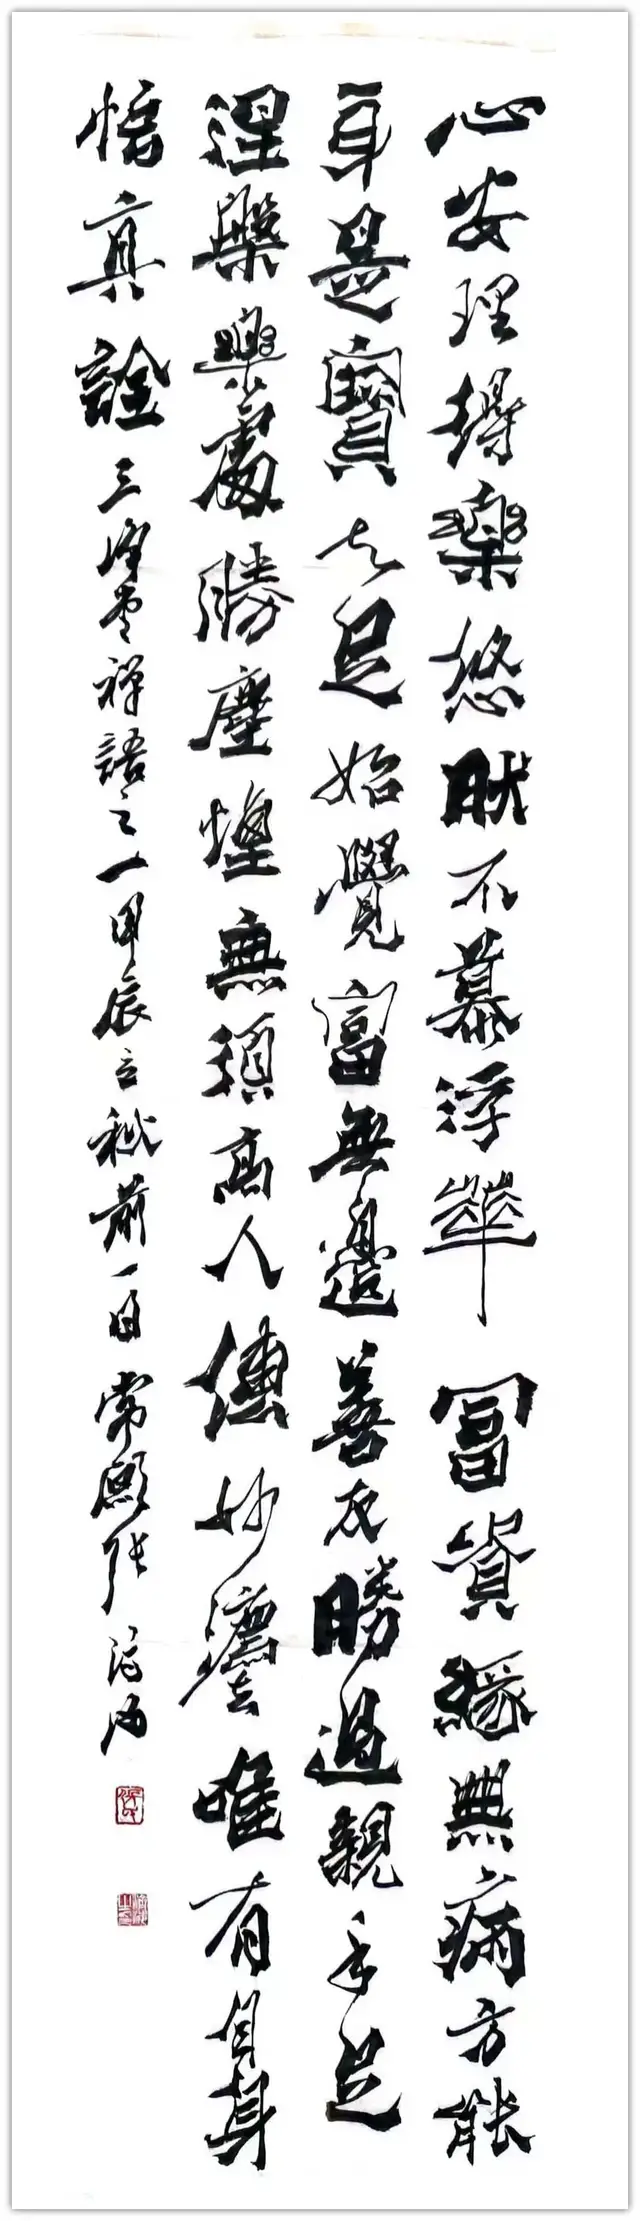 心安理得樂悠然不慕浮華富貴緣無病方能
身是寶知足始覺富無邊善友勝過親手足
涅槃樂處勝塵煙無須高人傳妙灋唯有自身
悟真詮三堂禪語之一甲辰立秋前一日常張